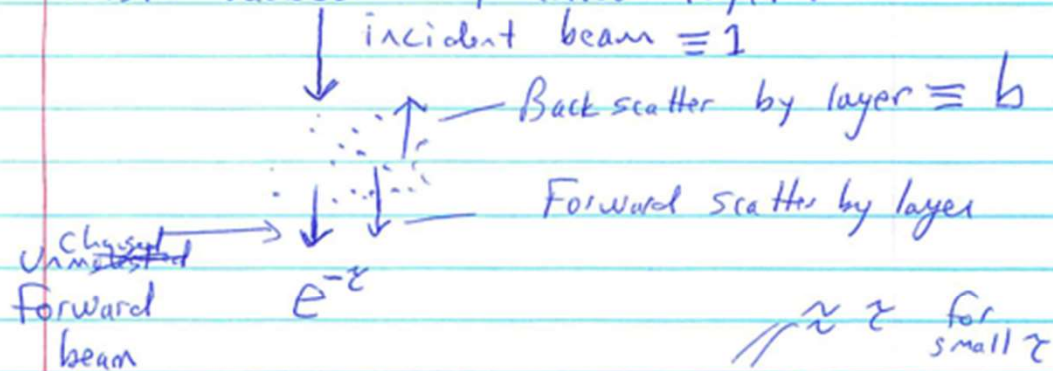 incident beam ≡ 1
Back scatter by layer ≡ b
Forward scatter by layer
Forward
beam
e^{-τ}
≈ τ for
small τ